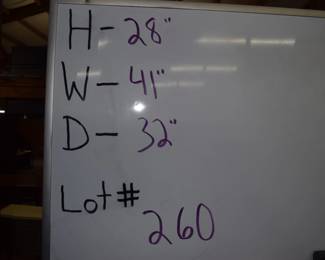 H- 28"
W- 41"
D- 32"
Lot #
260